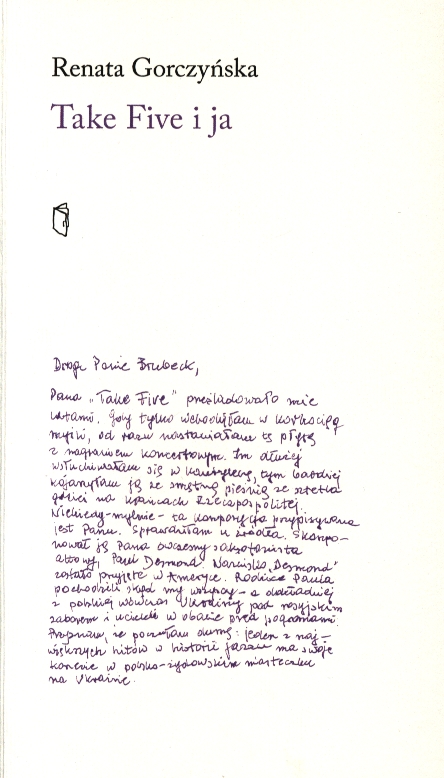 Renata Gorczyńska
Take Five i ja
Drogi Panie Brubeck,
Pana „Take Five" prześladowało mnie
latami. Gdy tylko wchodziłam w
myśli, od razu nastawiałam tę płytę
z nagraniem koncertowym. Im dłużej
wsłuchiwałam się w kantylenę, tym bardziej
kojarzyłam ją ze smętną pieśnią ze sztetla
gdzieś na krańcach Rzeczpospolitej.
Niekiedy – mylnie – ta kompozycja przypisywana
jest Panu. Sprawdziłam u źródła. Skompo-
nował ją Pana ówczesny saksofonista
altowy, Paul Desmond. Nazwisko „Desmond"
zostało przyjęte w Ameryce. Rodzice Paula
pochodzili skąd my wszyscy – a dokładniej
z polskiej wówczas Ukrainy pod rosyjskim
zaborem i uciekli w obawie przed pogromami.
Przyznam, że poczułam dumę: jeden z naj-
większych hitów w historii jazzu ma swoje
korzenie w polsko-żydowskim miasteczku
na Ukrainie.